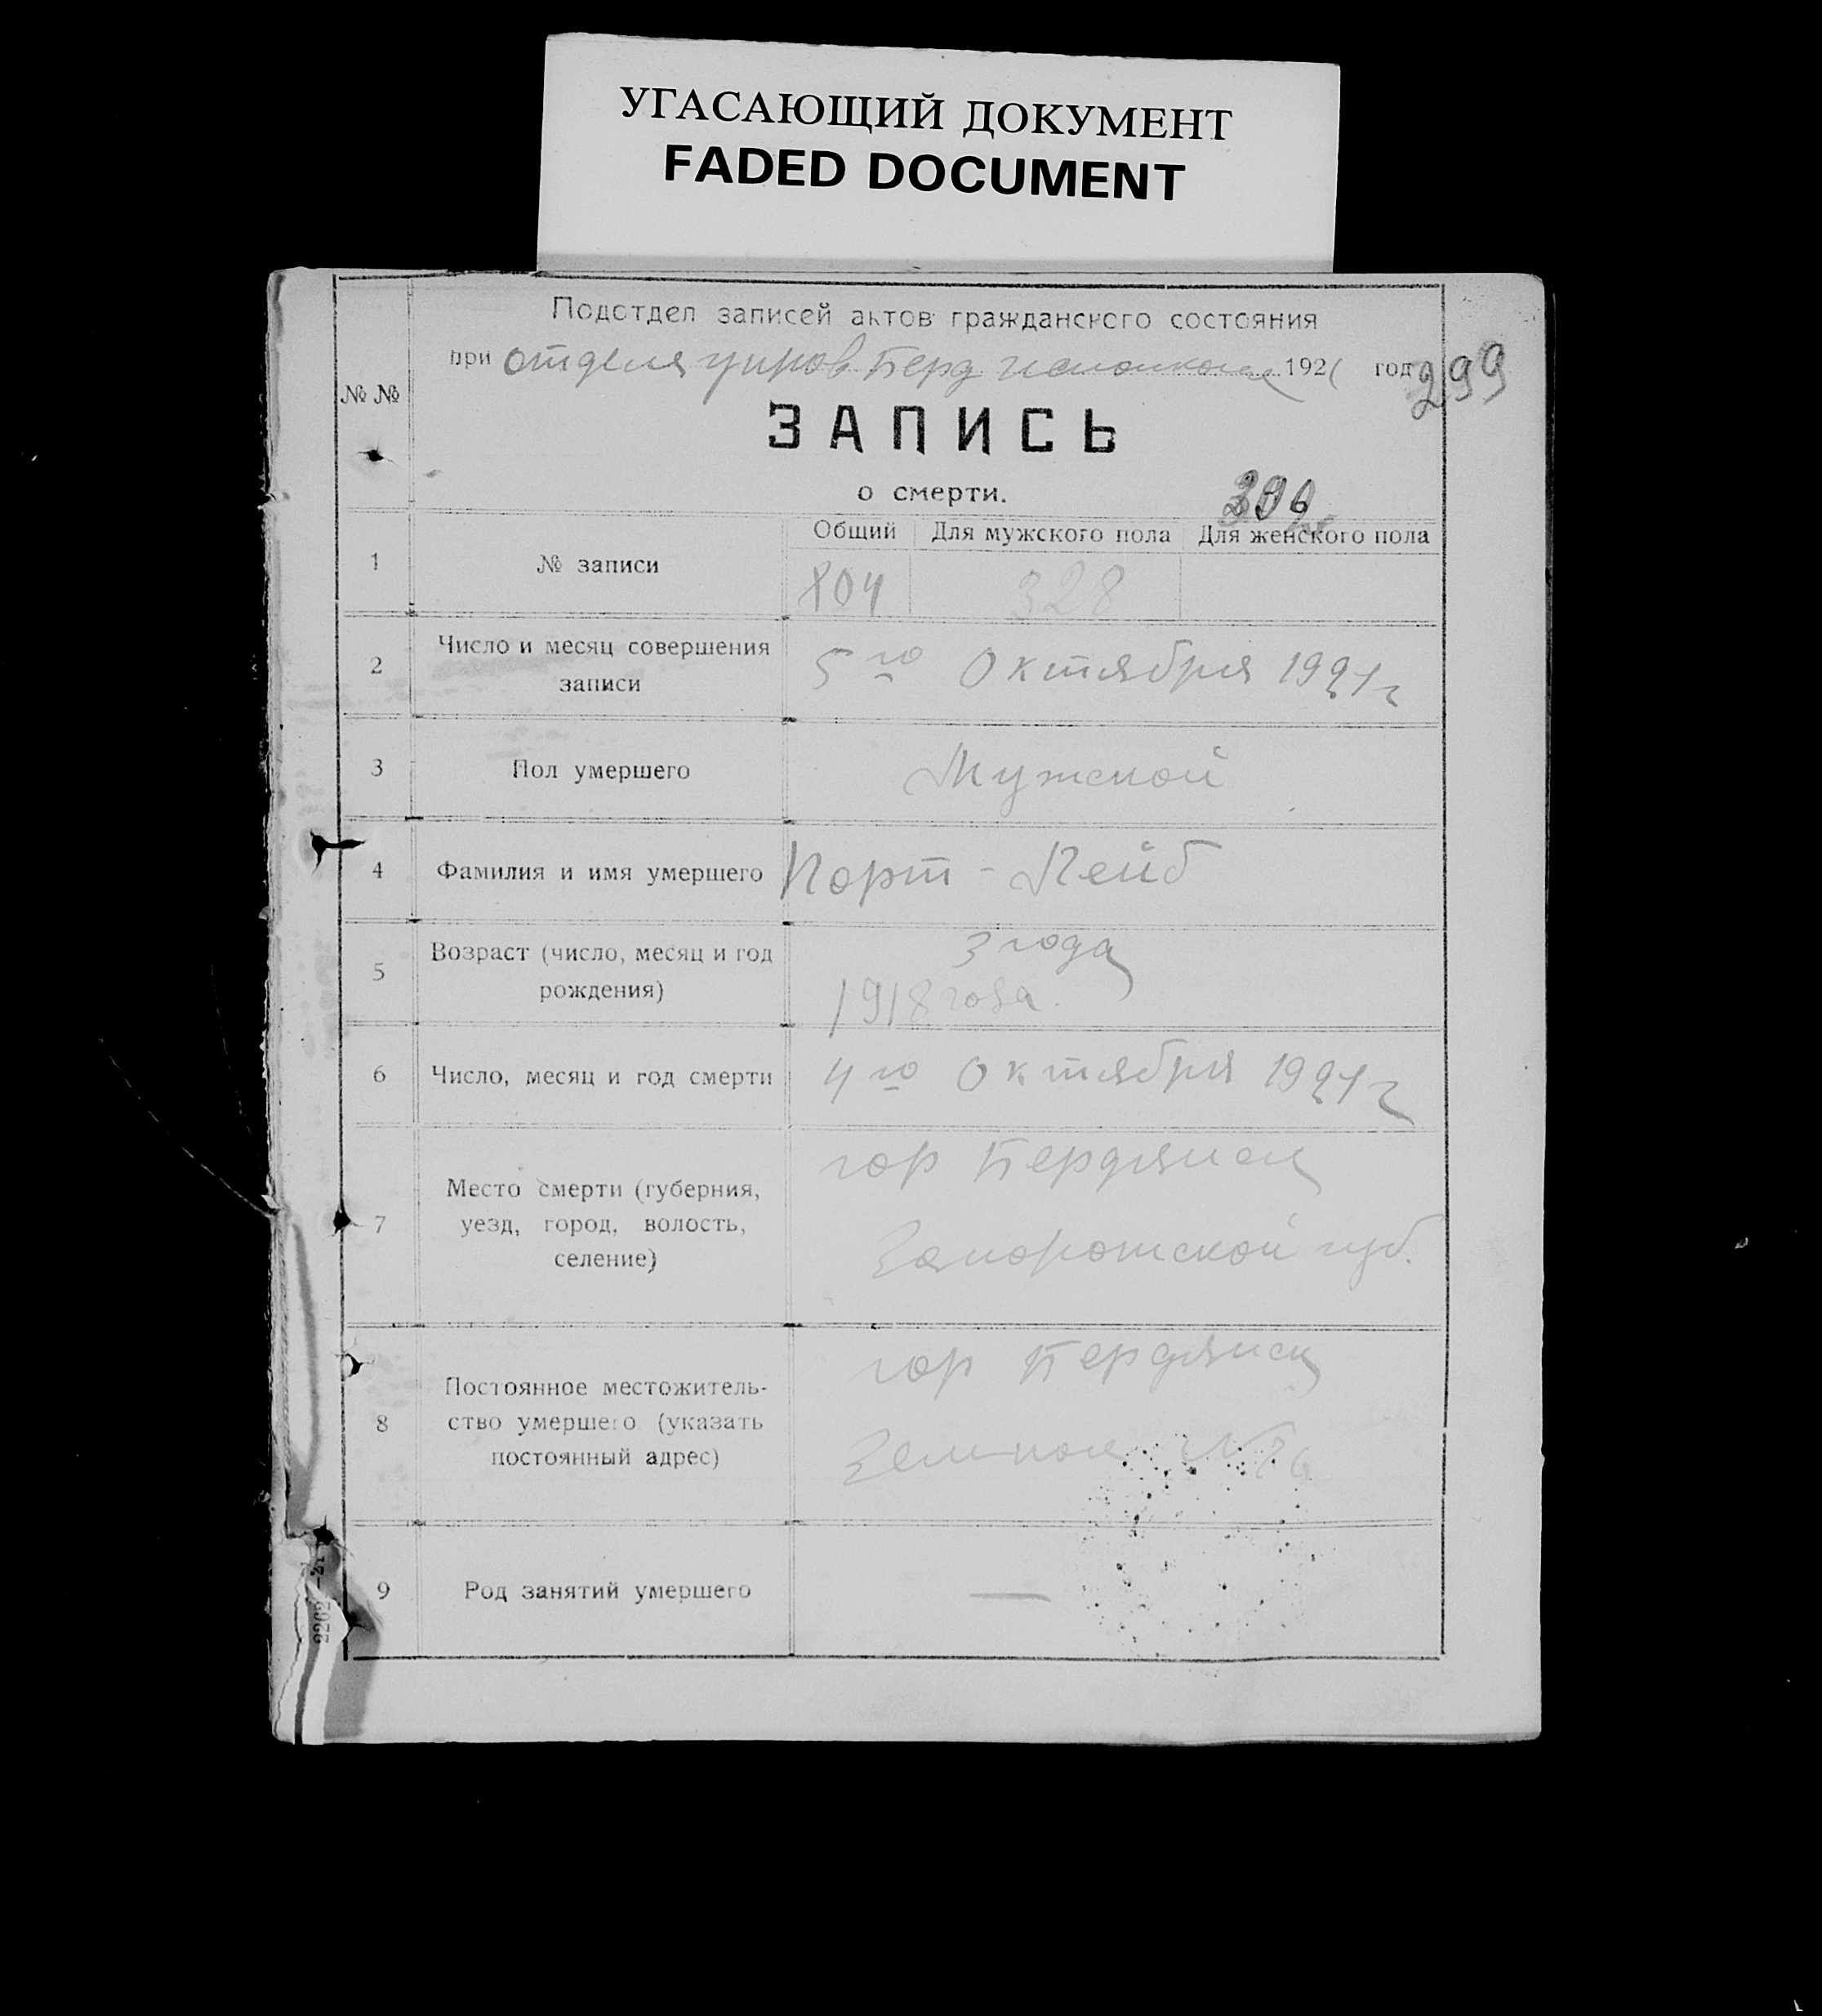 УГАСАЮЩИЙ ДОКУМЕНТ
FADED DOCUMENT
Подотдел записей актов гражданского состояния
при отдела управ Берд исполкома 1921 год
299
№ №
ЗАПИСЬ
о смерти.
Общий Для мужского пола Для женского пола
1 № записи 804 328
2 Число и месяц совершения
записи
5го Октября 1921 г
3 Пол умершего Мужской
4 Фамилия и имя умершего Порт - Лейб
5 Возраст (число, месяц и год
рождения)
3 года
1918 года.
6 Число, месяц и год смерти 4го Октября 1921 г
7 Место смерти (губерния,
уезд, город, волость,
селение)
гор Бердянск
Запорожской губ.
8 Постоянное местожитель-
ство умершего (указать
постоянный адрес)
гор Бердянск
№
9 Род занятий умершего —
2262